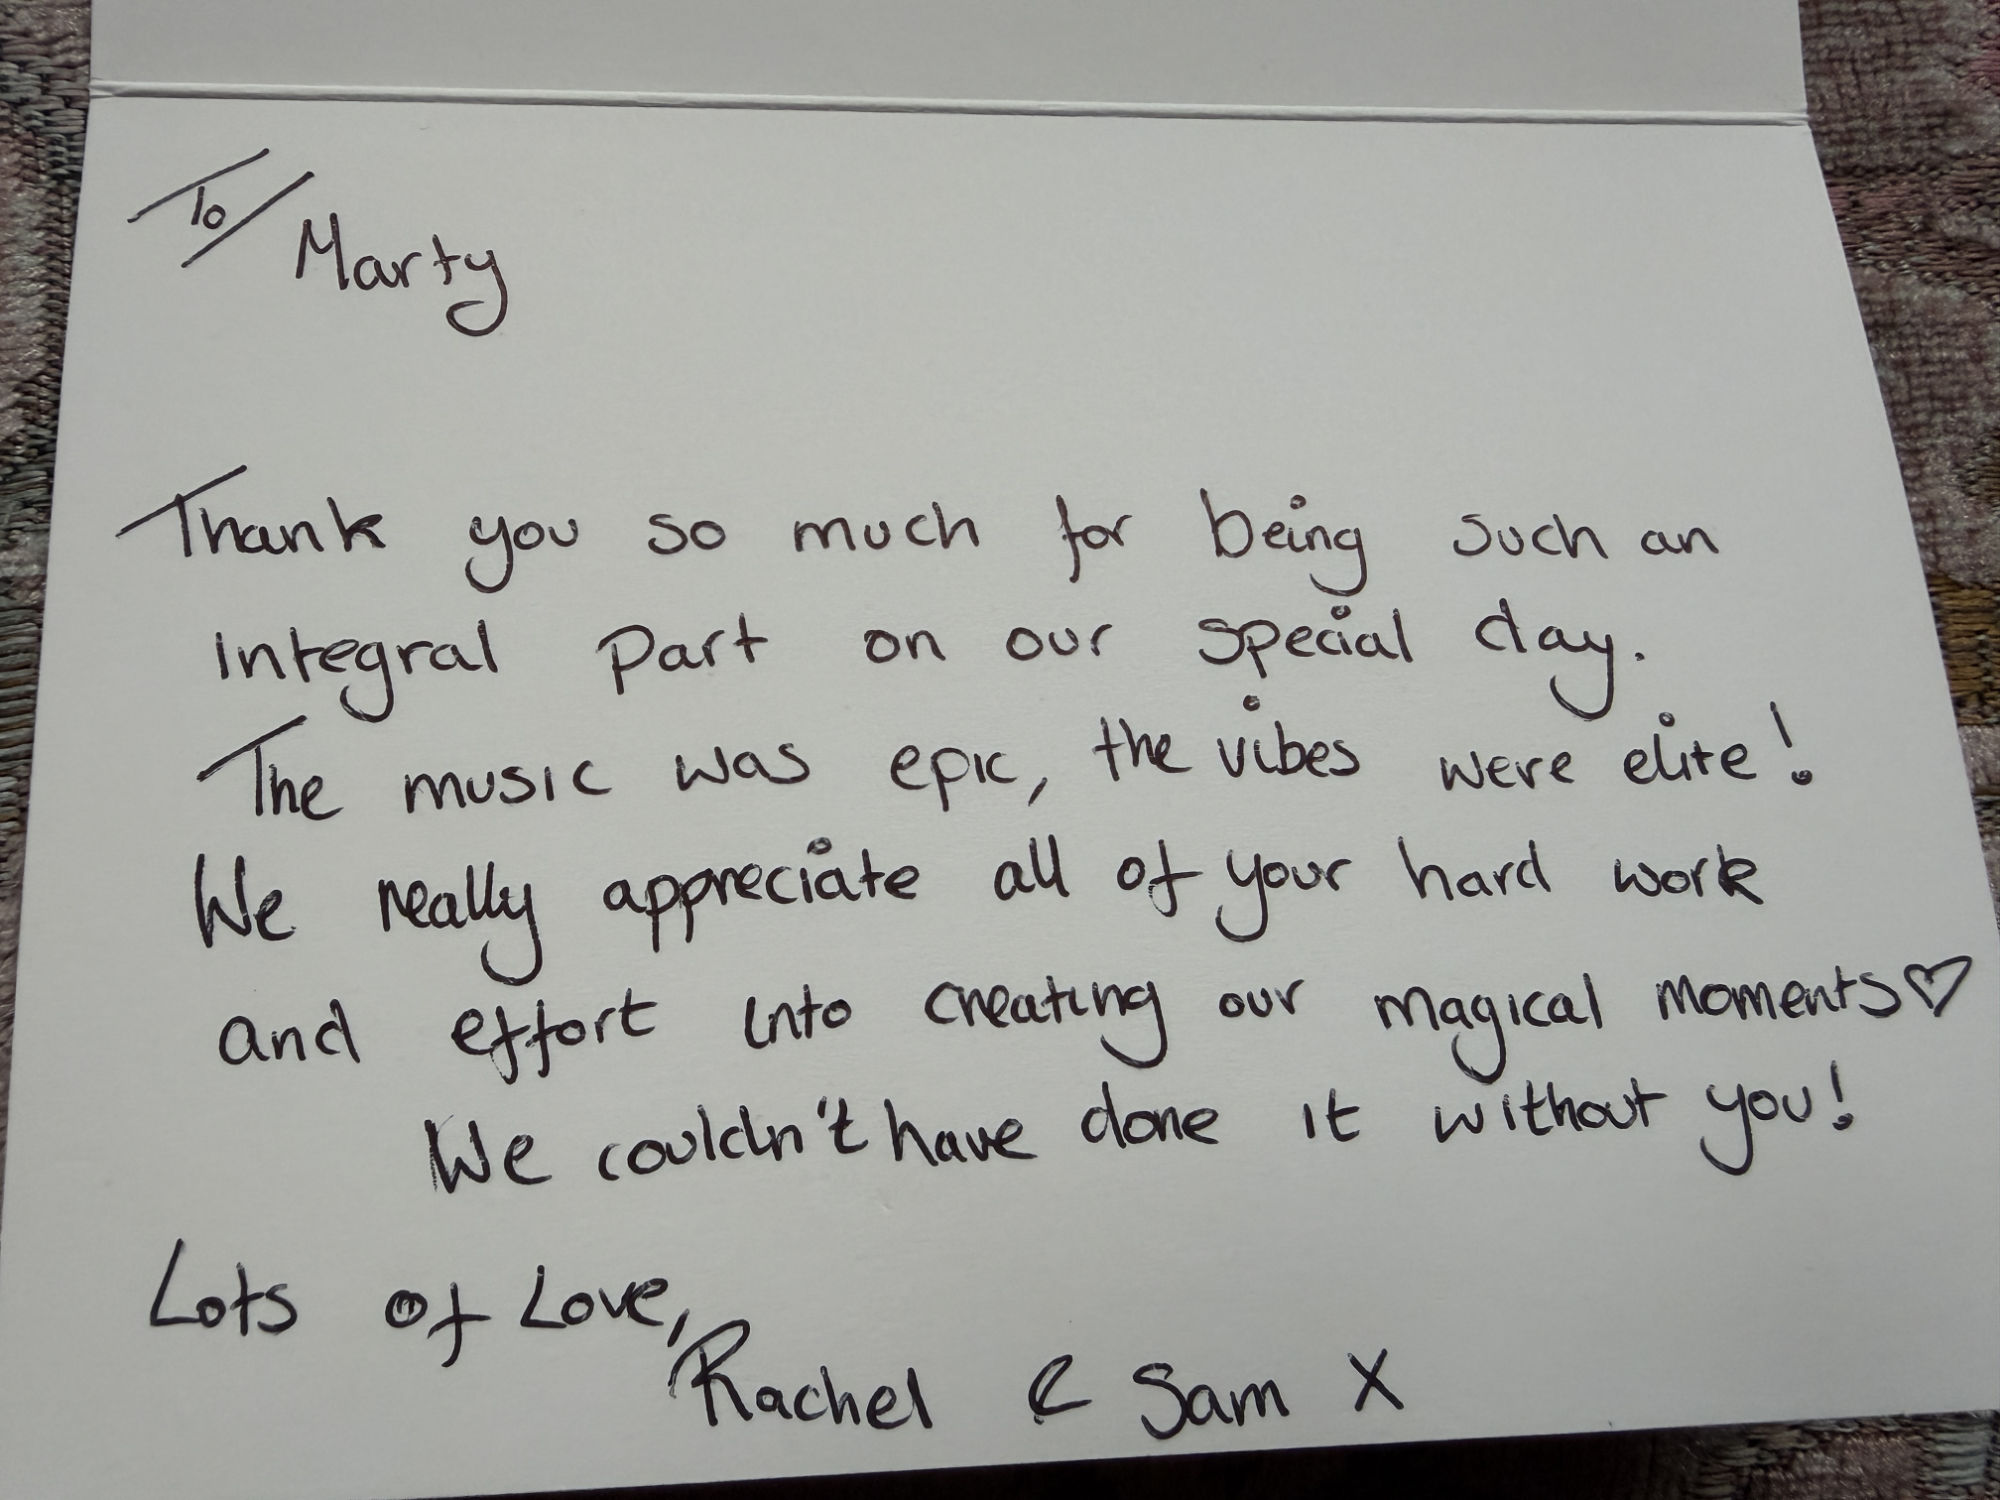 To/ Marty
Thank you so much for being such an
integral part on our special day.
The music was epic, the vibes were elite!
We really appreciate all of your hard work
and effort into creating our magical moments♡
We couldn't have done it without you!
Lots of Love,
Rachel & Sam X